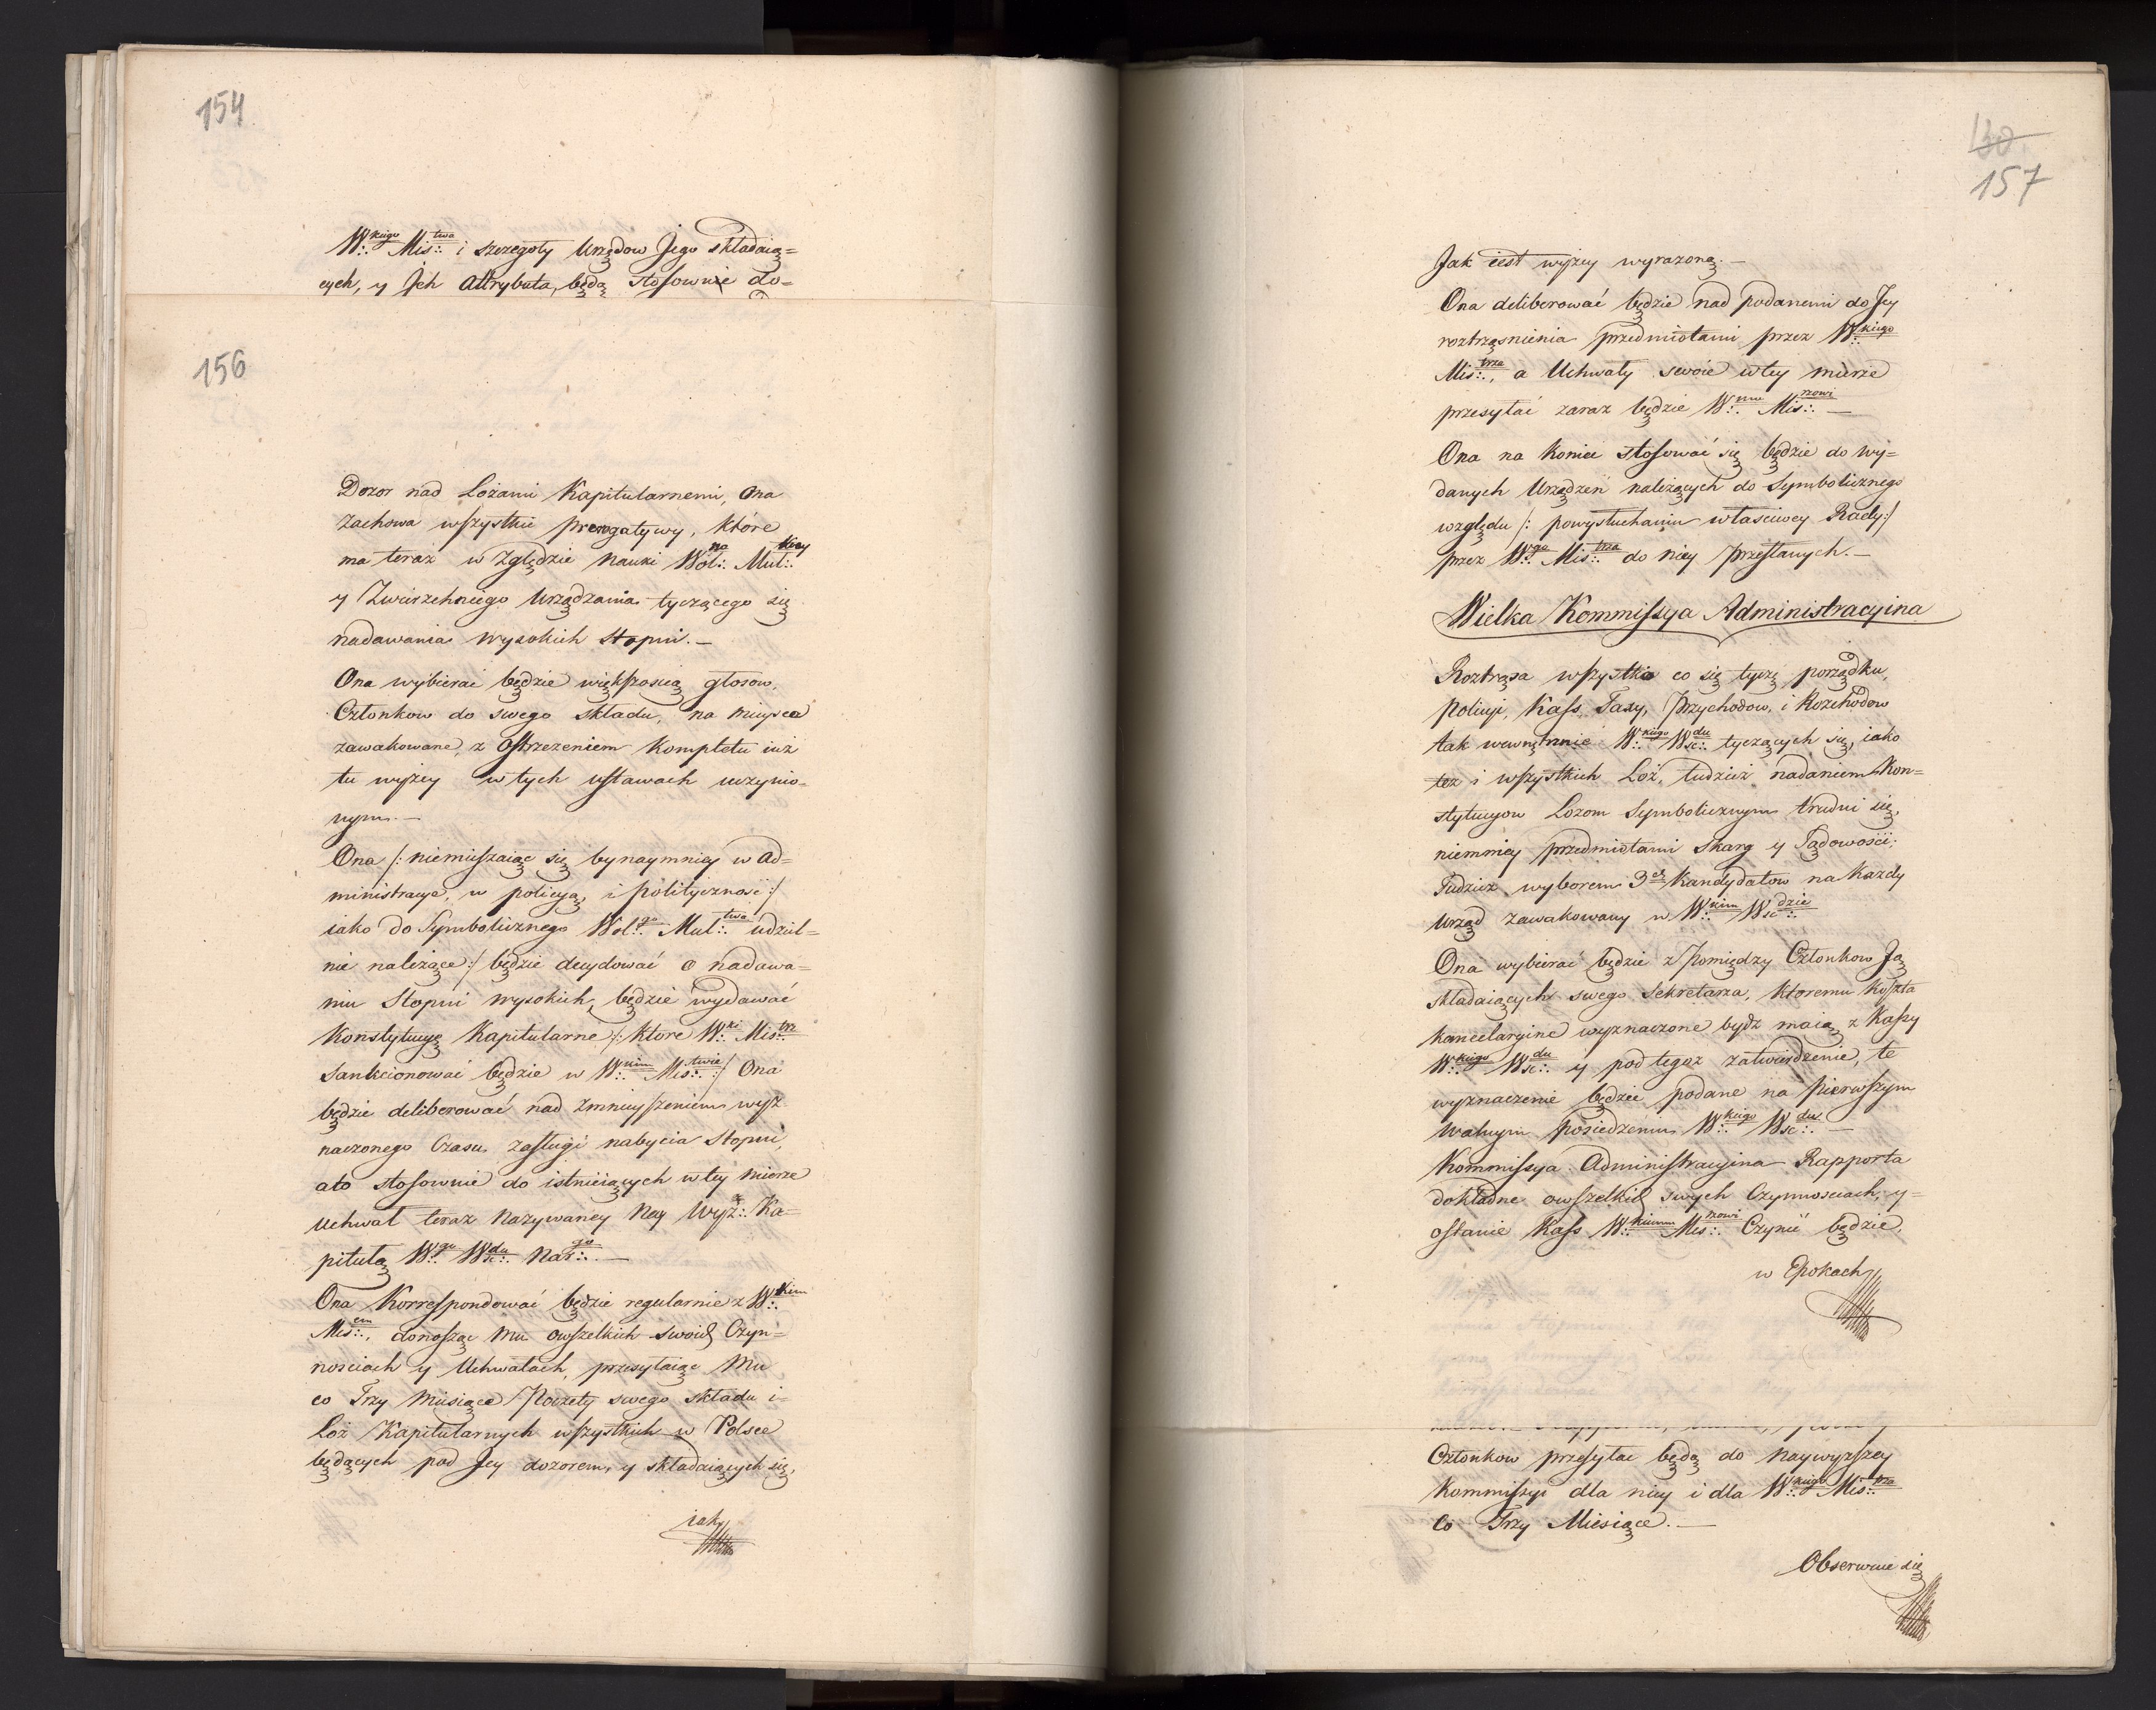 154
W∴kiego Mis∴twa i szczegoły Urzędow Jego składaią=
cych, y Jch Attrybuta, będą stosownie do=
156
Dozor nad Lożami Kapitularnemi, Ona
zachowa wszystkie prerogatywy, które
ma teraz w Zględzie Nauki Wol∴na Mul∴kiey
y Zwierzchniego Urządzania tyczącego się
nadawania wysokich Stopni.—
Ona wybierać będzie większoscią głosow,
Członkow do swego składu, na mieysca
zawakowane, z Ostrzezeniem Kompletu iuż
tu wyżey w tych ustawach uczynio=
nym.—
Ona /: niemieszaiąc się bynaymniey w Ad=
ministracye, w policyą, i polityczność :/
iako do Symbolicznego Wol∴go Mul∴twa udziel=
nie należące :/ będzie decydować o nadawa=
niu Stopni wysokich, będzie wydawać
Konstytucye Kapitularne /: ktore W∴ki Mis∴trz
Sankcionować będzie w W∴kim Mis∴twie :/ Ona
będzie deliberować nad zmnieyszeniem wyz=
naczonego Czasu zasługi nabycia Stopni,
ato stosownie do istnieiących w tey mierze
Uchwał teraz Nazywaney Nay Wyż∴ Ka=
pitułą W∴go Wsc∴du Nar∴go —
Ona Korrespondować będzie regularnie z W∴kim
Mis∴em, donosząc Mu owszelkich swoich Czyn=
nosciach y Uchwałach, przesyłaiąc Mu
co Trzy Miesiące Poczety swego składu i=
Loż Kapitularnych wszystkich w Polsce
będących pod Jey dozorem, y składaiących się,
iak
130.
157
Jak iest wyżey wyrazoną.—
Ona deliberować będzie nad podanemi do Jey
roztrząsnienia przedmiotami przez W∴kiego
Mis∴trza, a Uchwały swoie w tey mierze
przesyłać zaraz będzie W∴mu Mis∴rzowi —
Ona na Koniec stosować się będzie do wy=
danych Urządzeń należących do Symbolicznego
względu /: powysłuchaniu właściwey Rady :/
przez W∴go Mis∴trza do niey przesłanych.—
Wielka Kommissya Administracyina
Roztrąsa wszystko co się tyczę porządku,
Policyi, Kass, Taxy, Przychodow, i Rozchodow
tak wewnętrznie W∴kiego Wsc∴du tyczących się, iako
tez i wszystkich Loż, tudzież nadaniem Kon=
stytucyow Lozom Symbolicznym trudni się,
niemniey przedmiotami Skarg y Sądowości;
Tudzież wyborem 3ch Kandydatow na Każdy
Urząd zawakowany w W∴kim Wsc∴dzie
Ona wybierać będzie z Pomiędzy Członkow Ją
składaiących swego Sekretarza, ktoremu koszta
kancelaryine wyznaczone bydź maią z Kassy
W∴kiego Wsc∴du y pod tegoż zatwierdzenie, te
wyznaczenie będzie podane na pierwszym
walnym posiedzeniu W∴kiego Wsc∴du —
Kommissya Administracyina Rapporta
dokładne owszelkich swych Czynnosciach, y=
ostanie Kass W∴kiemu Mis∴rzowi Czynić będzie,
w Epokach
Członkow przesyłac będą do naywyższey
Kommissyi dla niey i dla W∴kiego Mis∴trza
Co Trzy Miesiące.—
Obserwuie się